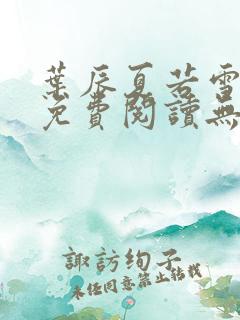 葉辰夏若雪
免費閱讀無
諏訪絢子
未任同意禁止轉載